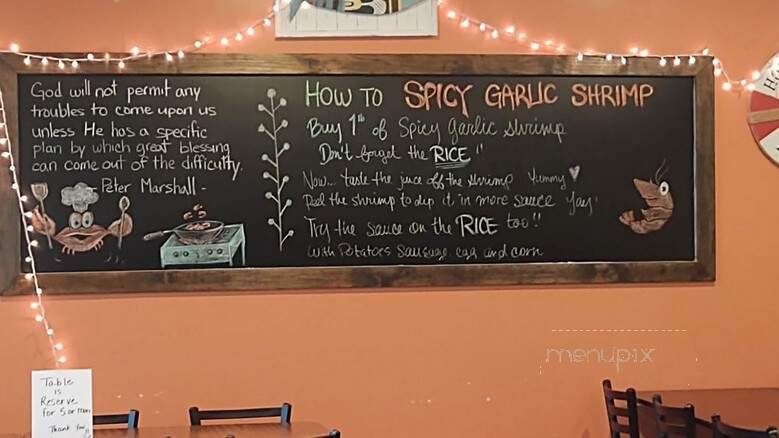 God will not permit any
troubles to come upon us
unless He has a specific
plan by which great blessing
can come out of the difficulty.
- Peter Marshall -
HOW TO SPICY GARLIC SHRIMP
Buy 1# of Spicy garlic shrimp
Don't forget the RICE!!
Now... taste the juice off the shrimp Yummy
Peel the shrimp to dip it in more sauce Yay!
Try the sauce on the RICE too!!
with Potatoes Sausage egg and corn
menupix
Table
is
Reserve
for 5 or more
Thank You!!